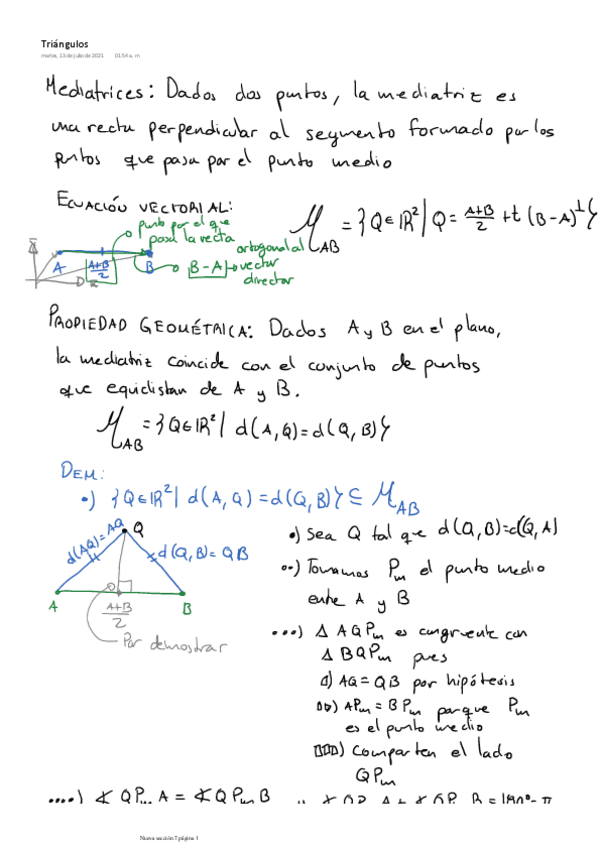 Triángulos
martes, 13 de julio de 2021 01:54 a. m.
Mediatrices: Dados dos puntos, la mediatriz es
una recta perpendicular al segmento formado por los
puntos que pasa por el punto medio
ECUACIÓN VECTORIAL:
M_AB = {Q∈ℝ² | Q = (A+B)/2 + t (B-A)^⊥}
punto por el que
pasa la recta
A (A+B)/2 B
B-A → vector
ortogonal al
director
PROPIEDAD GEOMÉTRICA: Dados A y B en el plano,
la mediatriz coincide con el conjunto de puntos
que equidistan de A y B.
M_AB = {Q∈ℝ² | d(A,Q)=d(Q,B)}
DEM:
•) {Q∈ℝ² | d(A,Q)=d(Q,B)} ⊆ M_AB
d(AQ)=AQ Q d(Q,B)=QB
A (A+B)/2 B
Por demostrar
•) Sea Q tal que d(Q,B)=d(Q,A)
••) Tomamos Pm el punto medio
entre A y B
•••) Δ AQPm es congruente con
Δ BQPm pues
I) AQ = QB por hipótesis
II) APm = BPm porque Pm
es el punto medio
III) Comparten el lado
QPm
••••) ∢ QPm A = ∢ QPm B
Nueva sección 7 página 1